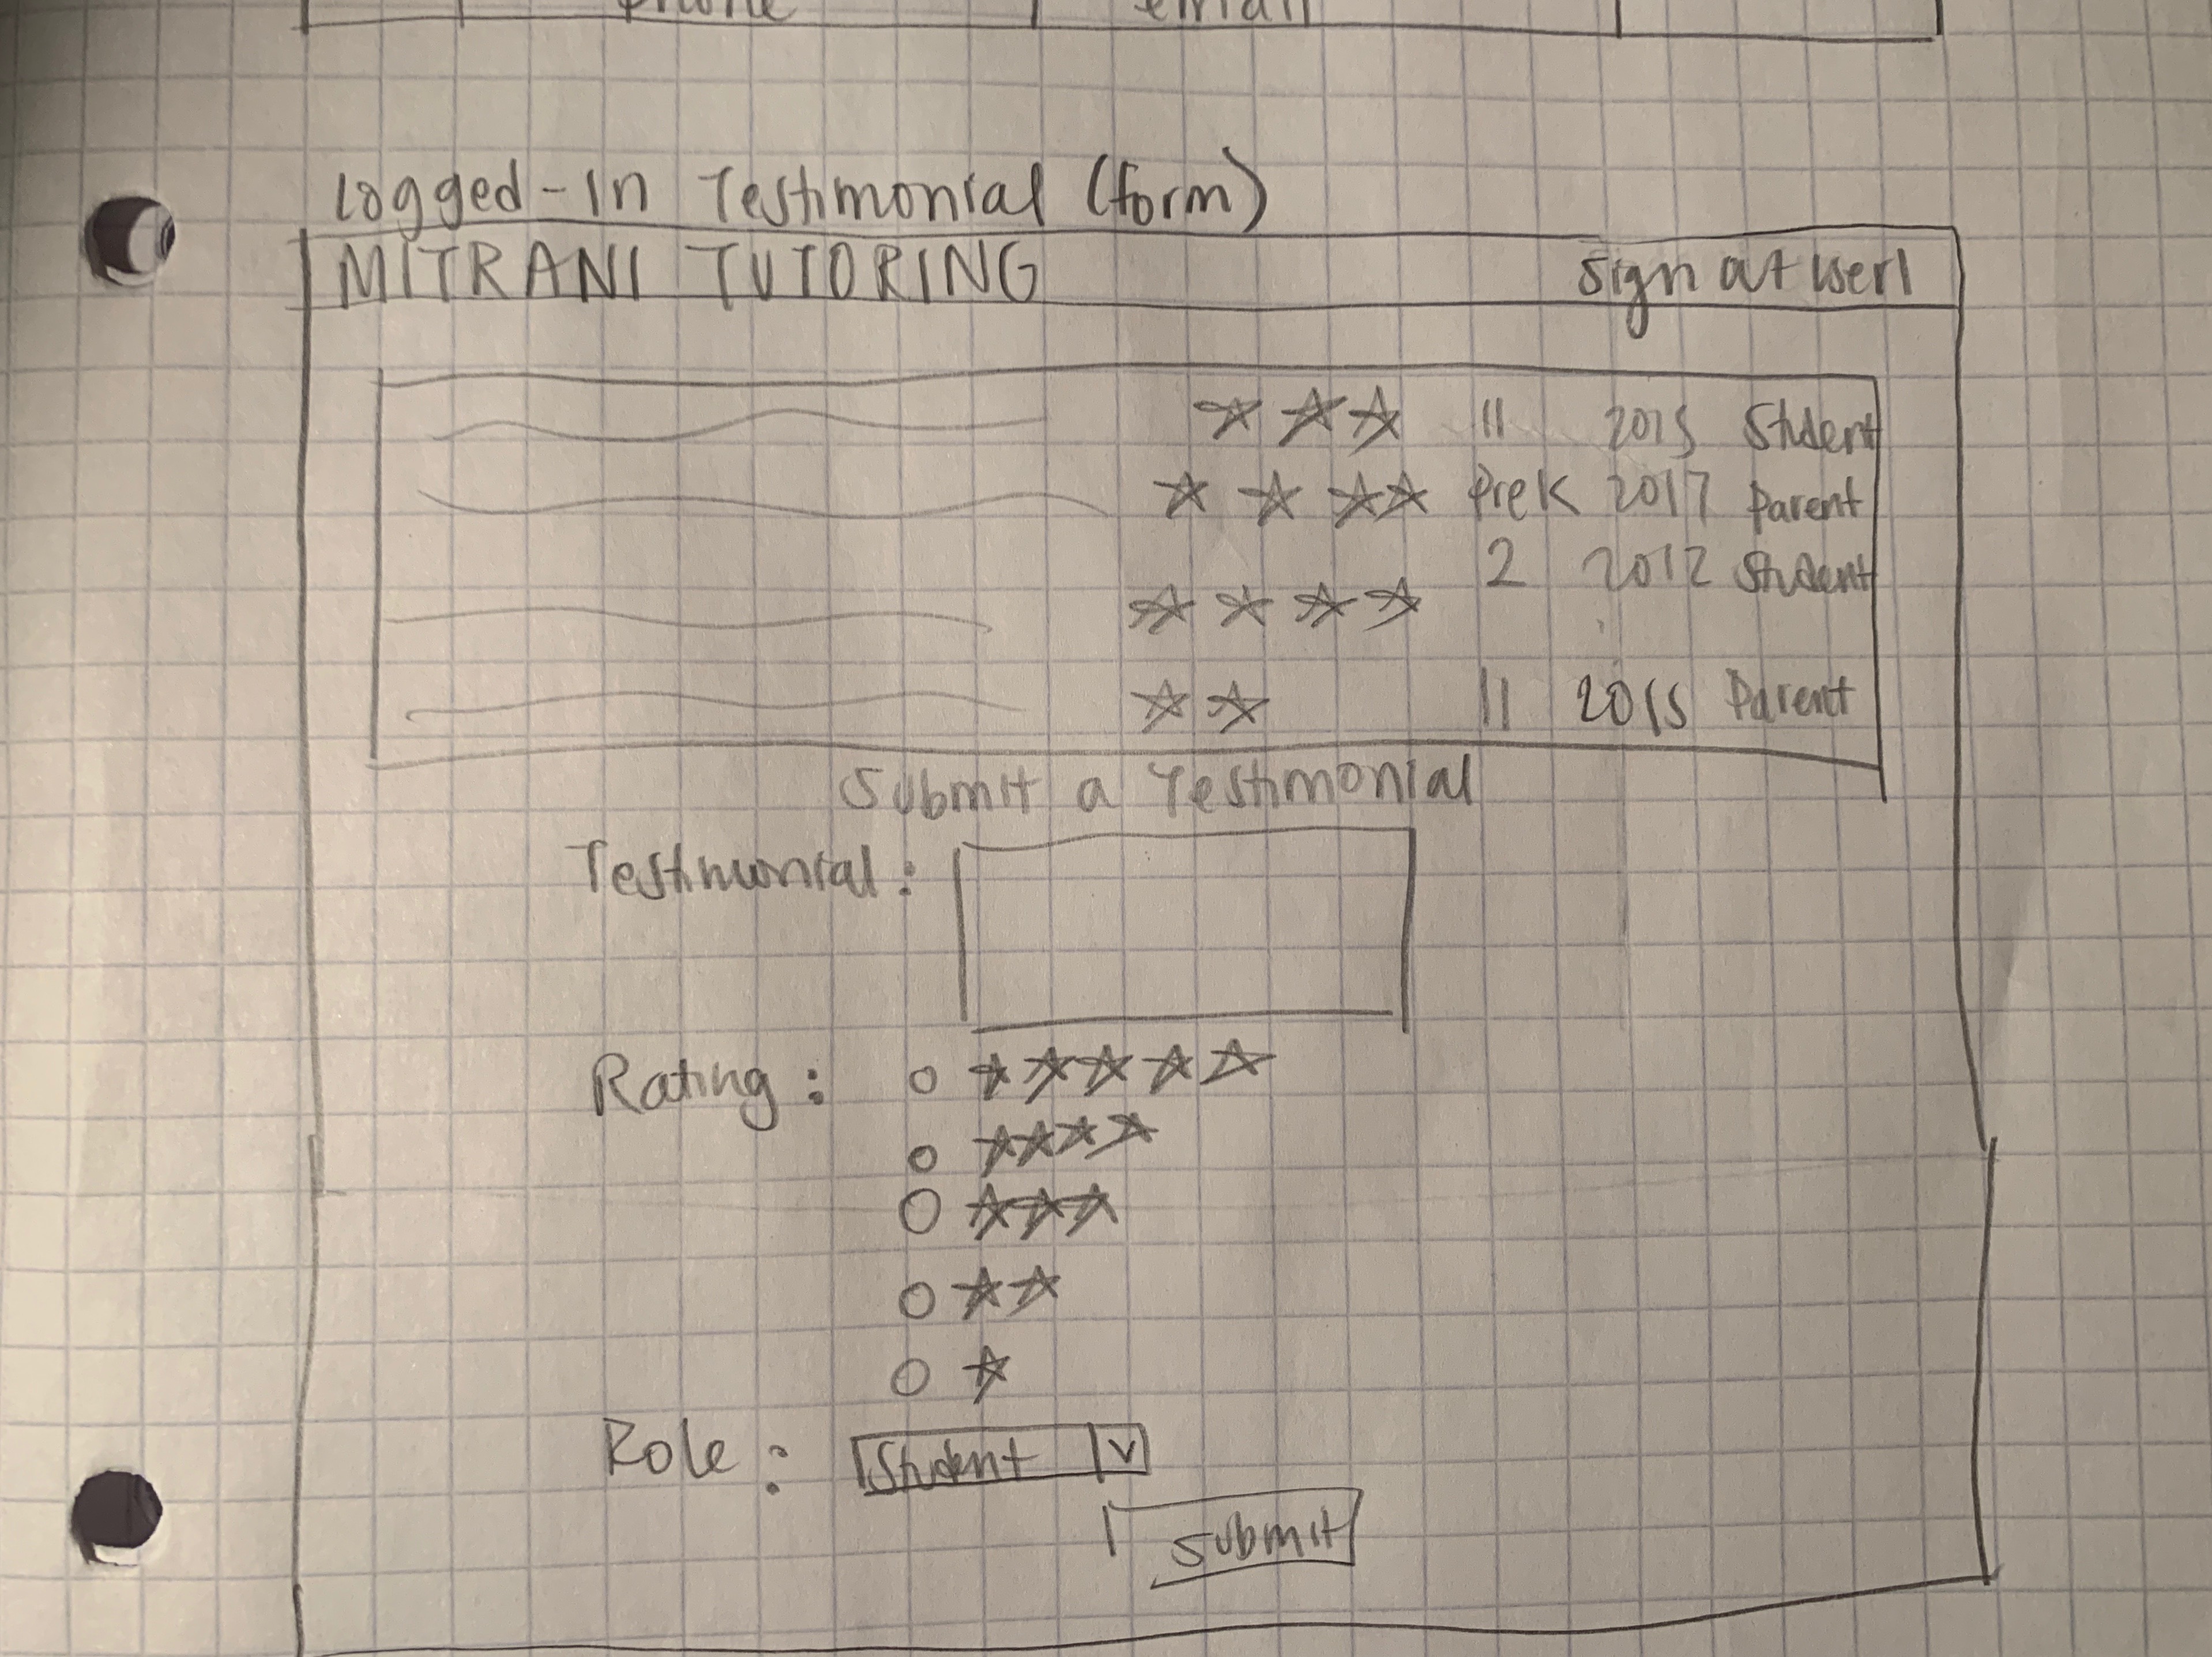 phone email
Logged-In Testimonial (form)
MITRANI TUTORING Sign out User1
11 2015 Student
PreK 2017 Parent
2 2012 Student
11 2015 Parent
Submit a Testimonial
Testimonial:
Rating:
Role: Student
Submit